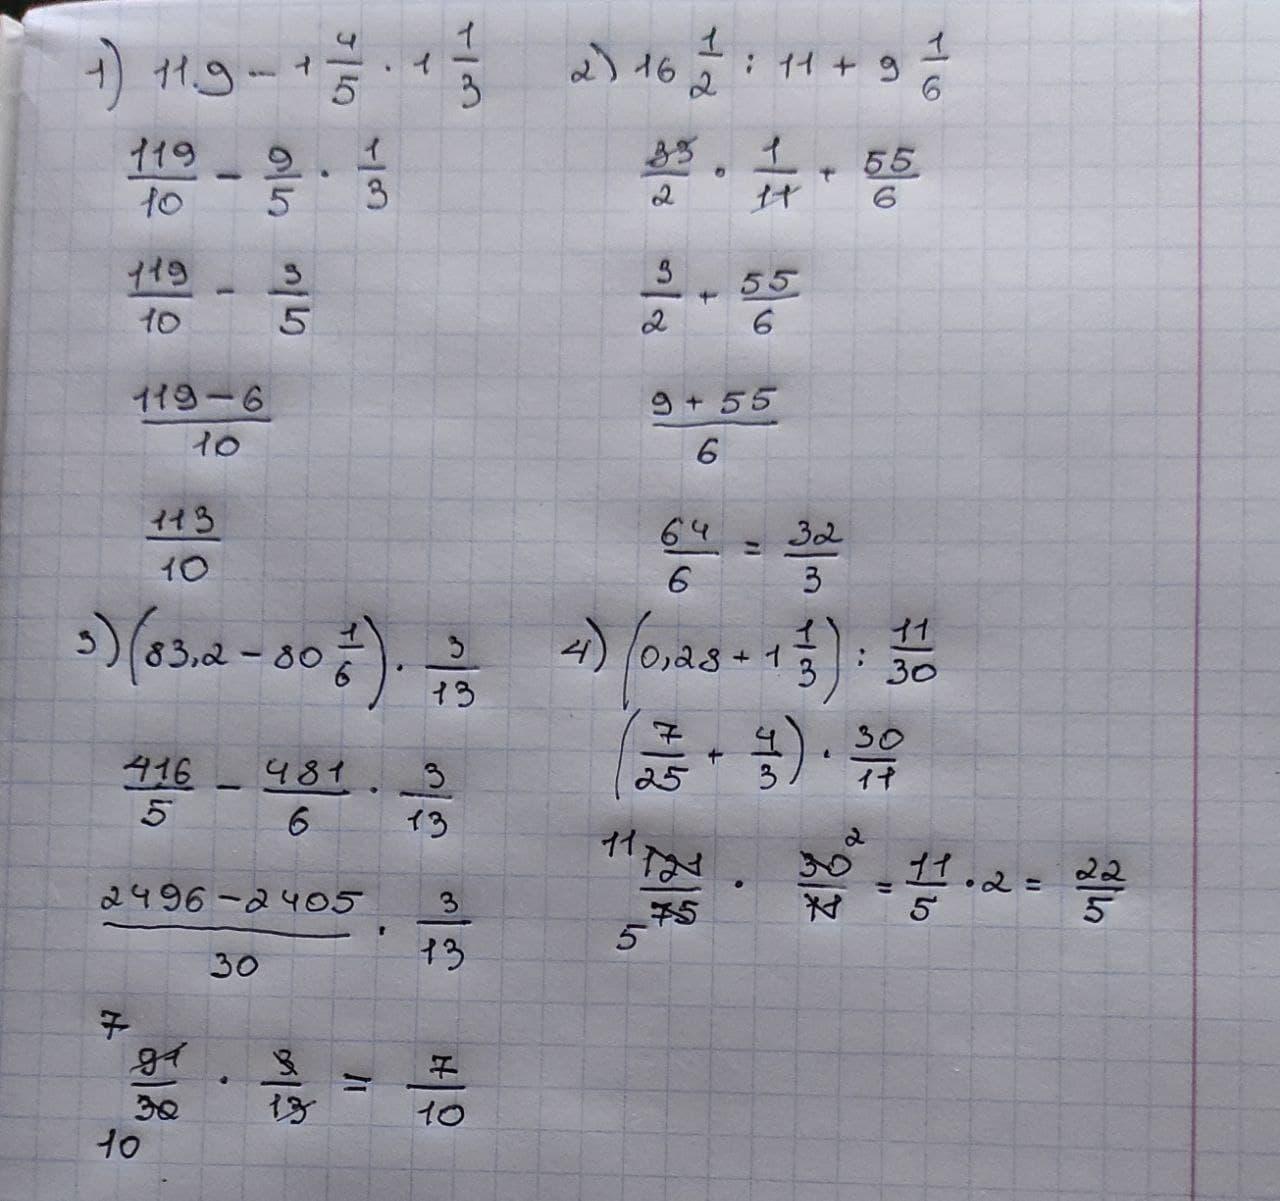 1) 11.9 - 1 4/5 · 1 1/3
119/10 - 9/5 · 1/3
119/10 - 3/5
119-6/10
113/10
2) 16 1/2 : 11 + 9 1/6
33/2 · 1/11 + 55/6
3/2 + 55/6
9+55/6
64/6 = 32/3
3) (83,2 - 80 1/6) · 3/13
416/5 - 481/6 · 3/13
2496-2405/30 · 3/13
7
91/30 · 3/13 = 7/10
10
4) (0,28 + 1 1/3) : 11/30
(7/25 + 4/3) · 30/11
11 2
121/75 · 30/11 = 11/5 · 2 = 22/5
5